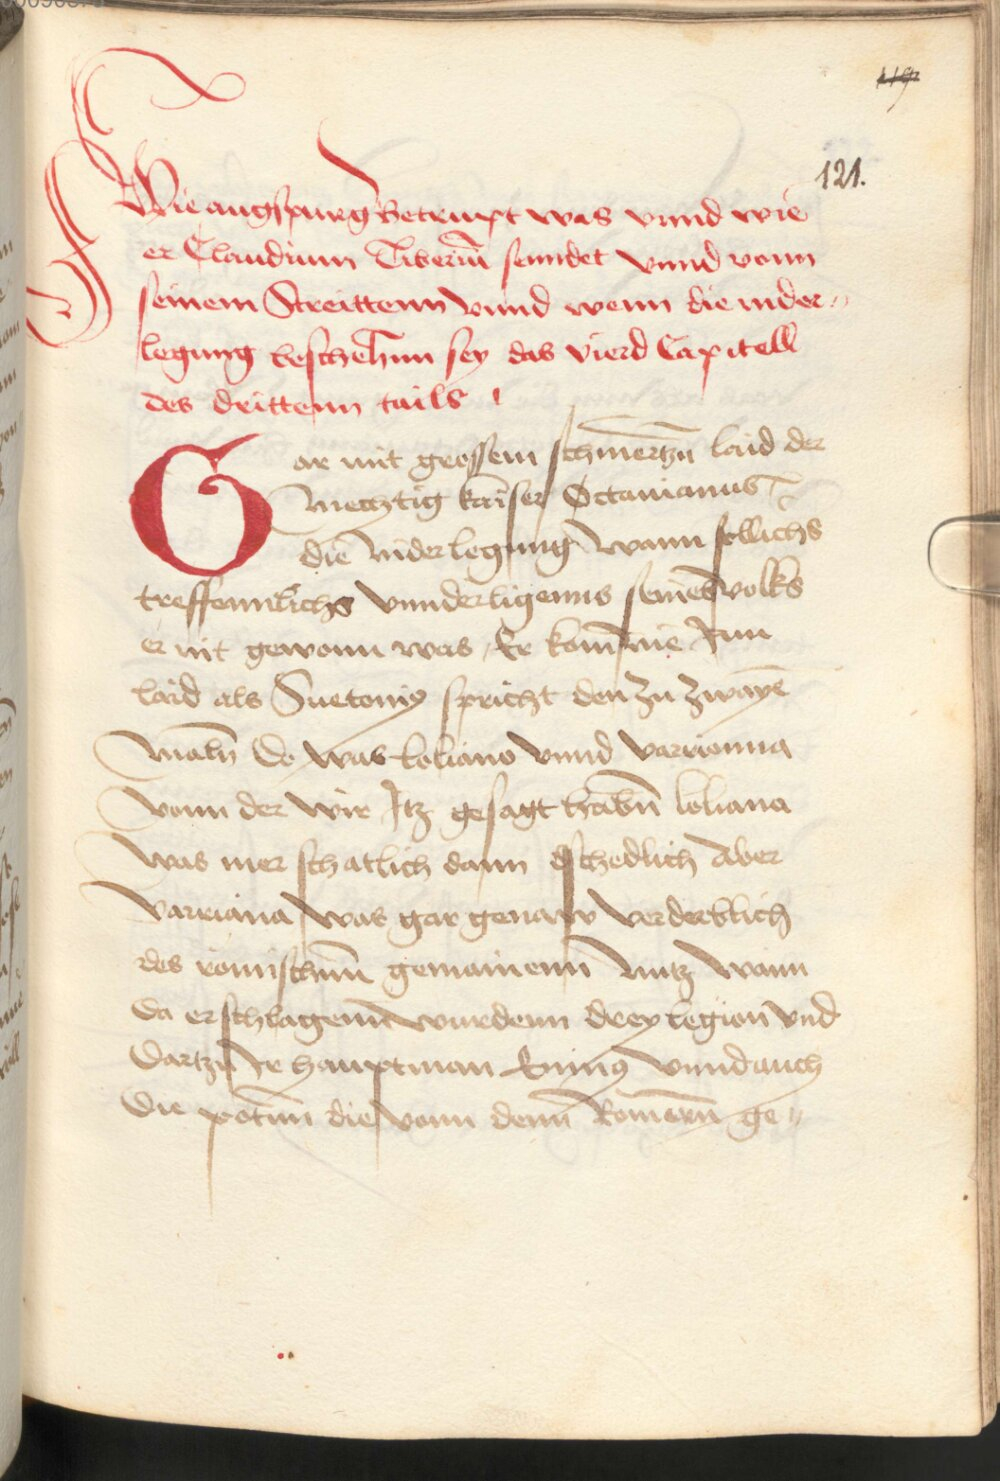 119
121.
Wie augspurg betrupt was vnnd wie
er Claudium Tiberiū senndet vnnd vonn
seinem Streittenn vnnd wenn die nider-
legung beschehnn sey das vierd Capitell
des drittenn tails
Gar mit grossem schmertzn laid der
mechtig kaiser Octauianus
die niderlegung wann sollichs
treffennlichs vnnderligenns seines volks
er nit gewonn was Er kom nie Inn
laid als Suetoniꝰ spricht den zu zwaye
maln Do was Loliano vnnd varrionna
vonn der wir Itz gesagt habn loliana
was mer schatlich dann schedlich Aber
varriana was gar genaw verderblich
des römischnn gemainenn nutz Wann
da erschlagenn wurdenn drey legion vnd
Dartzu Ir hauptman vnnd auch
Die potnn die vonn denn Romern ge-